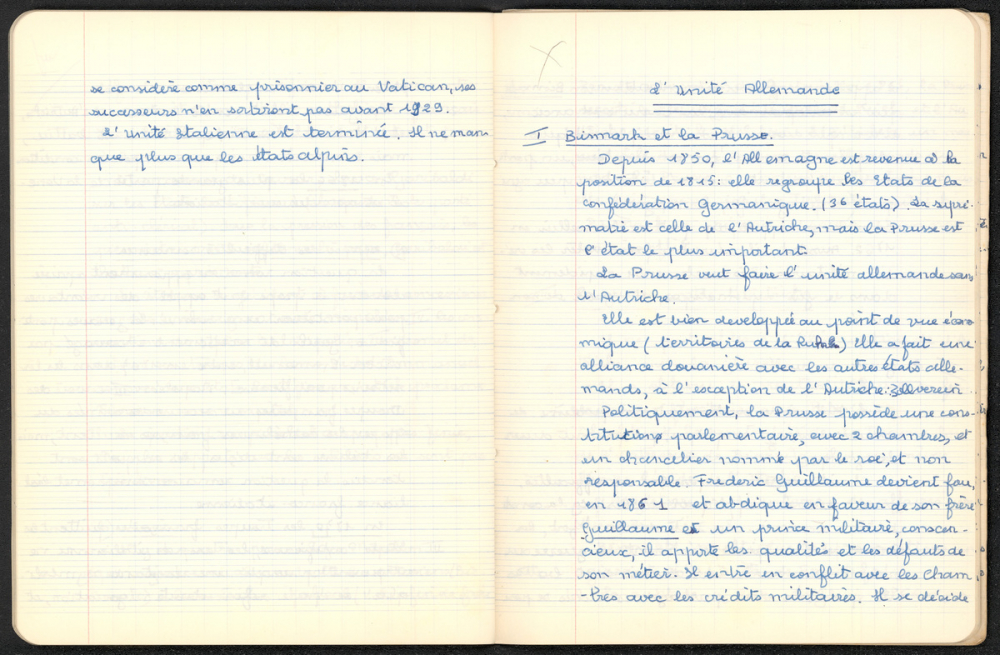 se considère comme prisonnier au Vatican, ses
successeurs n'en sortiront pas avant 1929.
L'unité Italienne est terminée. Il ne man-
que plus que les états alpins.
L'unité Allemande
I Bismark et la Prusse.
Depuis 1850, l'Allemagne est revenue à la
position de 1815: elle regroupe les Etats de la
confédération Germanique. (36 états). La supré-
matie est celle de l'Autriche, mais la Prusse est
l'état le plus important.
La Prusse veut faire l'unité allemande sans
l'Autriche.
Elle est bien developpée au point de vue écono
mique (territoires de la Ruhr) Elle a fait une
alliance douanière avec les autres états alle-
mands, à l'exception de l'Autriche: Zollverein
Politiquement, la Prusse possède une cons-
titution parlementaire, avec 2 chambres, et
un chancelier nommé par le roi, et non
responsable. Frederic Guillaume devient fou,
en 1861 et abdique en faveur de son frère
Guillaume est un prince militaire, conscen-
cieux, il apporte les qualités et les défauts de
son métier. Il entre en conflit avec les Cham
-bres avec les crédits militaires. Il se décide